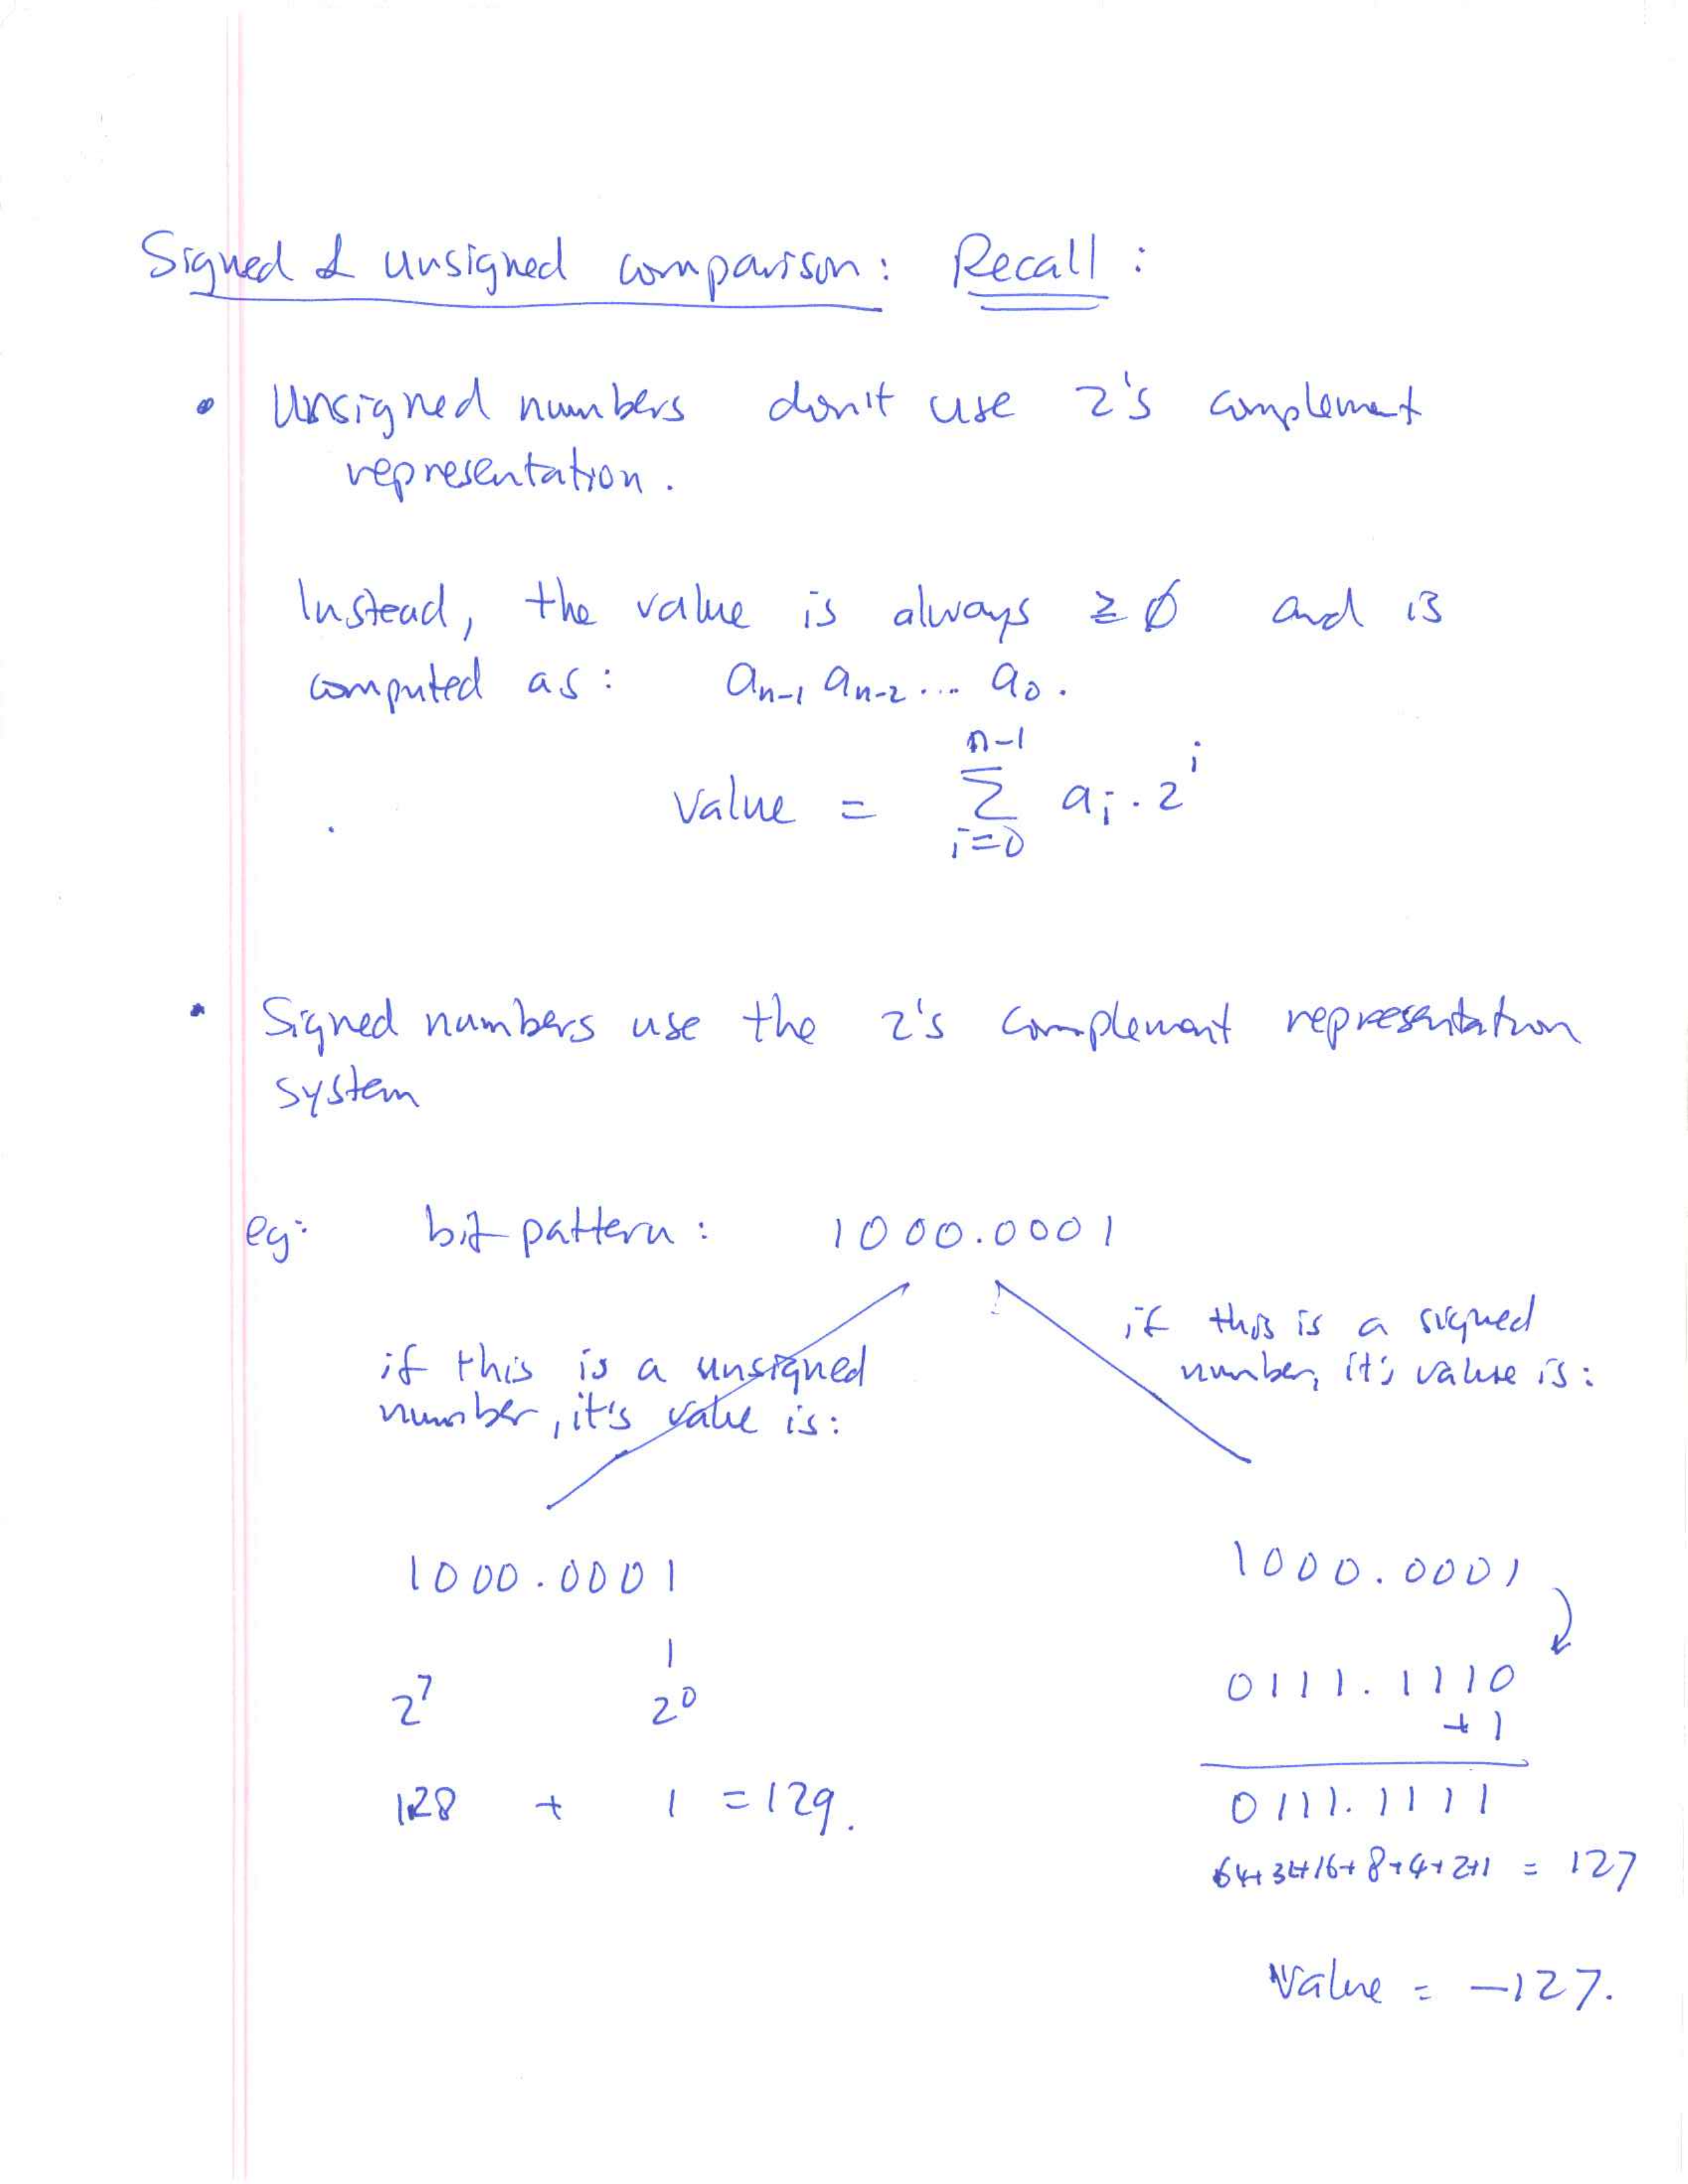 Signed & unsigned comparison: Recall:
• Unsigned numbers don't use 2's complement
representation.
Instead, the value is always ≥ ∅ and is
computed as: aₙ₋₁ aₙ₋₂ ... a₀.
n-1
value = Σ aᵢ · 2ⁱ
i=0
• Signed numbers use the 2's complement representation
system
eg: bit pattern: 1000.0001
if this is a signed
number, it's value is:
if this is a unsigned
number, it's value is:
1000.0001
1
2⁷ 2⁰
128 + 1 = 129.
1000.0001
0111.1110
+1
0111.1111
64+32+16+8+4+2+1 = 127
Value = -127.